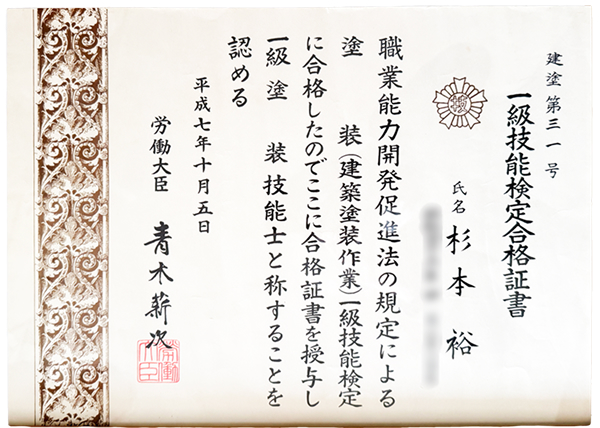 建塗第三一号
一級技能検定合格証書
氏名 杉本 裕
職業能力開発促進法の規定による
塗 装(建築塗装作業)一級技能検定
に合格したのでここに合格証書を授与し
一級 塗 装技能士と称することを
認める
平成七年十月五日
労働大臣 青木薪次
労働大臣